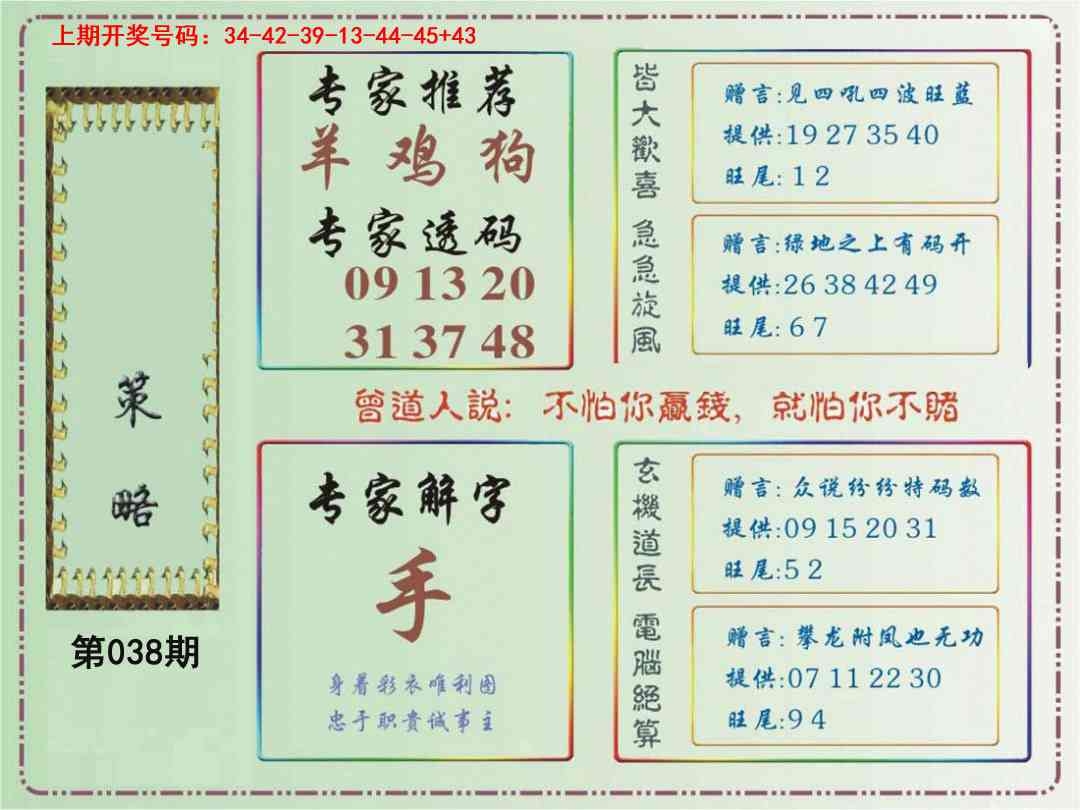 上期开奖号码：34-42-39-13-44-45+43
策略
第038期
专家推荐
羊 鸡 狗
专家透码
09 13 20
31 37 48
皆大歡喜
赠言:见四吼四波旺蓝
提供:19 27 35 40
旺尾: 1 2
急急旋風
赠言:绿地之上有码开
提供:26 38 42 49
旺尾: 6 7
曾道人説: 不怕你贏錢, 就怕你不賭
专家解字
手
身着彩衣唯利图
忠于职责诚事主
玄機道長
赠言: 众说纷纷特码数
提供:09 15 20 31
旺尾:5 2
電腦絕算
赠言: 攀龙附凤也无功
提供:07 11 22 30
旺尾:9 4